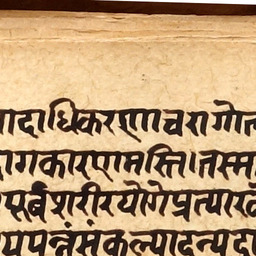 पादाधिकरणाचरागोत
दागकारणमस्ति।तस्मा
प्पूर्वशरीरयोगेप्रत्यारब्
यपपन्नंसंकल्पादन्यद